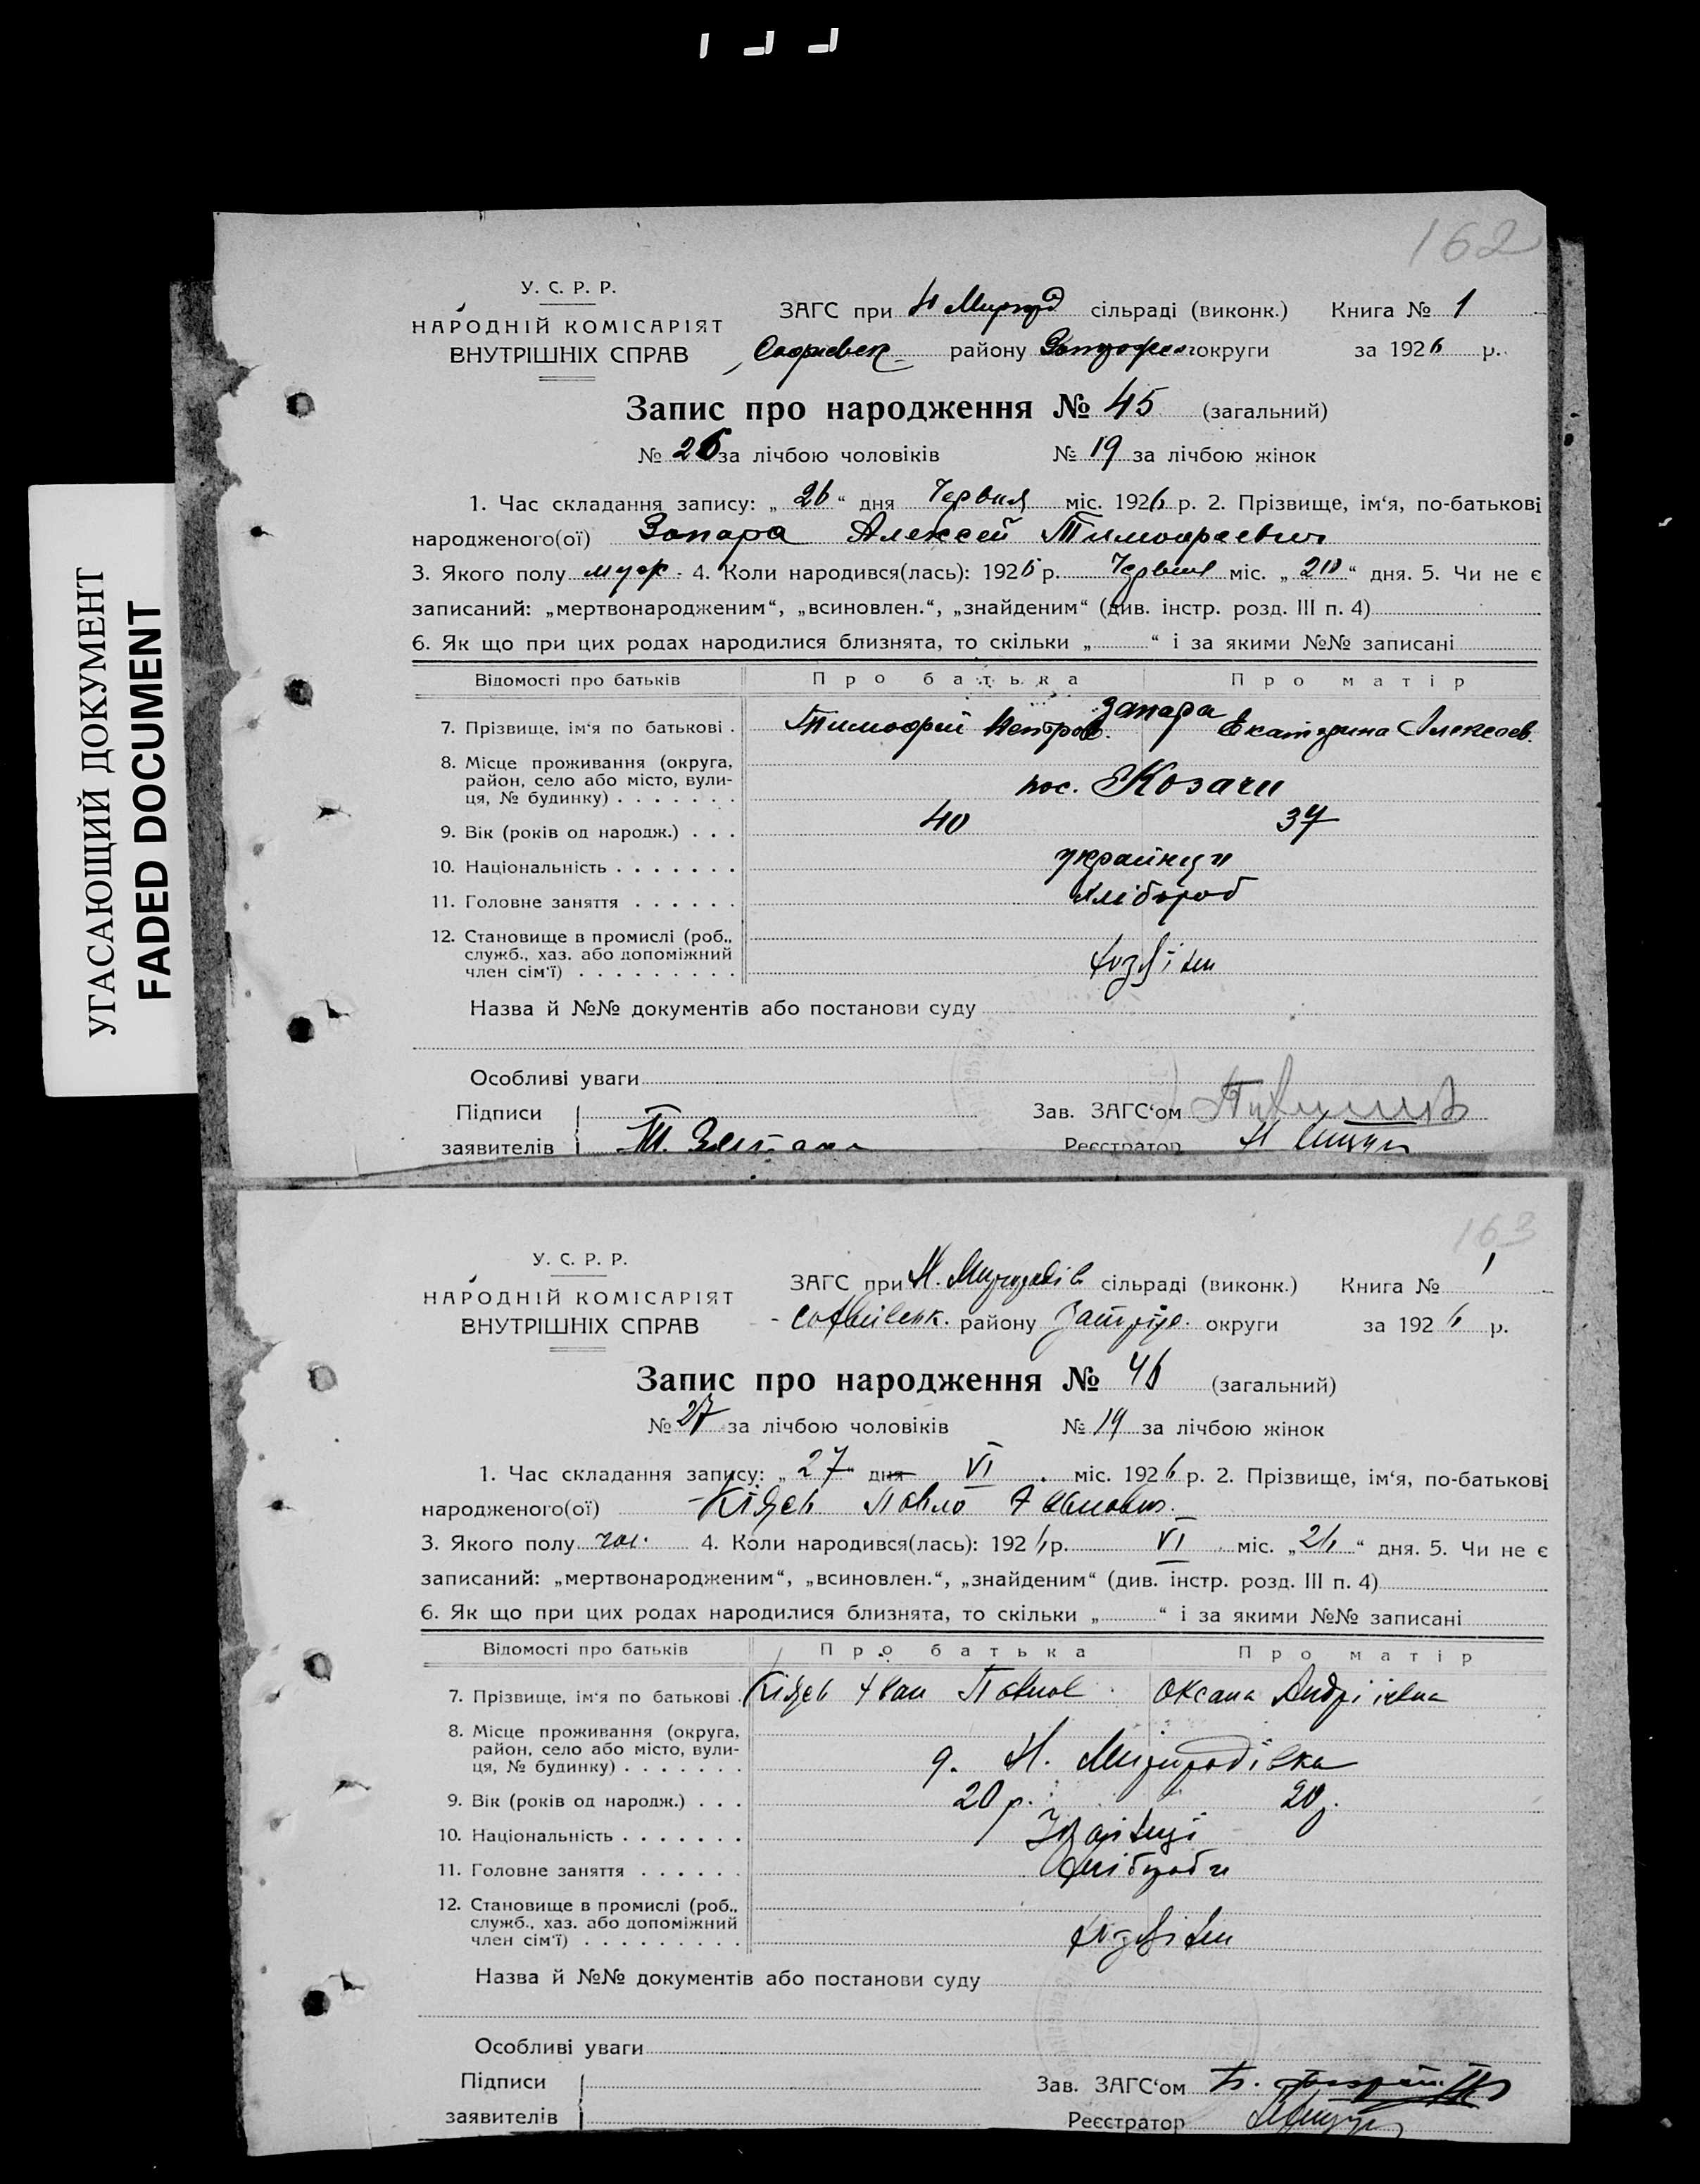 162
У. С. Р. Р.
НАРОДНІЙ КОМІСАРІЯТ
ВНУТРІШНІХ СПРАВ
ЗАГС при Н Миргор сільраді (виконк.) Книга № 1
Софиевск району округи за 1926 р.
Запис про народження № 45 (загальний)
№ 26 за лічбою чоловіків № 19 за лічбою жінок
1. Час складання запису: „ 26 “ дня Червня міс. 1926 р. 2. Прізвище, ім‘я, по-батькові
народженого(ої) Запара Алексей Тимофеевич
3. Якого полу муж. 4. Коли народився(лась): 1926 р. Червня міс. „ “ дня. 5. Чи не є
записаний: „мертвонародженим“, „всиновлен.“, „знайденим“ (див. інстр. розд. III п. 4)
6. Як що при цих родах народилися близнята, то скільки „ “ і за якими №№ записані
Відомості про батьків Про батька Про матір
7. Прізвище, ім‘я по батькові . Тимофей Петров. Запара Екатерина Алексеев.
8. Місце проживання (округа,
район, село або місто, вули-
ця, № будинку) . . . . . . . пос. Козачи
9. Вік (років од народж.) . . . 40 37
10. Національність . . . . . . . українци
11. Головне заняття . . . . . . хлібороб
12. Становище в промислі (роб.,
служб., хаз. або допоміжний
член сім‘ї) . . . . . . . . .
Назва й №№ документів або постанови суду
Особливі уваги
Підписи Зав. ЗАГС‘ом
заявителів Т. Запара Реєстратор
УГАСАЮЩИЙ ДОКУМЕНТ
FADED DOCUMENT
163
У. С. Р. Р.
НАРОДНІЙ КОМІСАРІЯТ
ВНУТРІШНІХ СПРАВ
ЗАГС при Н. сільраді (виконк.) Книга № 1
Софиївськ. району округи за 1926 р.
Запис про народження № 46 (загальний)
№ 27 за лічбою чоловіків № 19 за лічбою жінок
1. Час складання запису: „ 27 “ дня VI міс. 1926 р. 2. Прізвище, ім‘я, по-батькові
народженого(ої) Павло Іванович.
3. Якого полу чол. 4. Коли народився(лась): 1926 р. VI міс. „ 26 “ дня. 5. Чи не є
записаний: „мертвонародженим“, „всиновлен.“, „знайденим“ (див. інстр. розд. III п. 4)
6. Як що при цих родах народилися близнята, то скільки „ “ і за якими №№ записані
Відомості про батьків Про батька Про матір
7. Прізвище, ім‘я по батькові . Іван Павлов. Оксана Андріївна
8. Місце проживання (округа,
район, село або місто, вули-
ця, № будинку) . . . . . . . Н. Миргородівка
9. Вік (років од народж.) . . . 20 р. 20 р.
10. Національність . . . . . . . Українці
11. Головне заняття . . . . . . хлібороби
12. Становище в промислі (роб.,
служб., хаз. або допоміжний
член сім‘ї) . . . . . . . . .
Назва й №№ документів або постанови суду
Особливі уваги
Підписи Зав. ЗАГС‘ом
заявителів Реєстратор